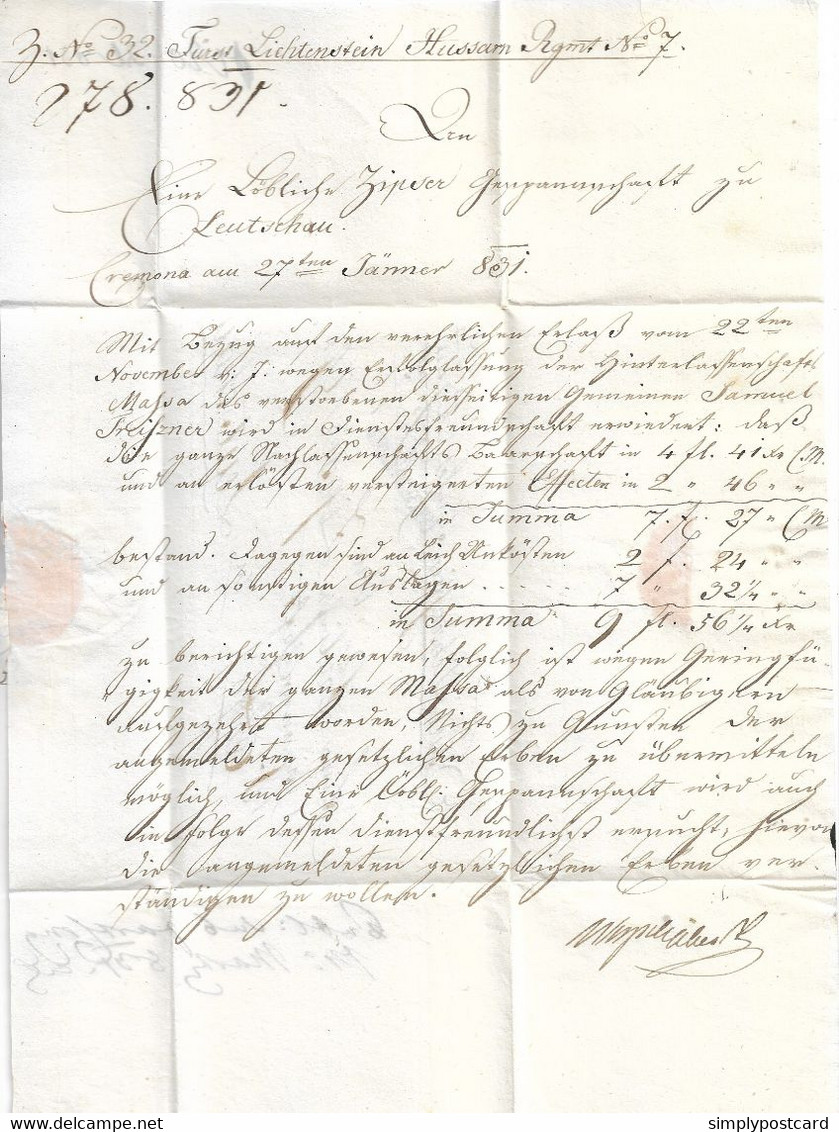 Z. No 32. Fürst Lichtenstein Hussarn Rgmt No 7.
278. 831.
An
Eine Löbliche Zipser Gespannschaft zu
Leutschau.
Cremona am 27ten Jänner 831.
Mit Bezug auf den verehrlichen Erlaß vom 22ten
November v: J: wegen Erfolglassung der Hinterlassenschafts
Massa des verstorbenen diesseitigen Gemeinen Samuel
wird in Dienstesfreundschaft erwiedert: daß
die ganze Nachlassenschafts Baarschaft in 4 fl. 41 Xr CM.
und an erlösten versteigerten Effecten in 2 " 46 " "
in Summa 7 f. 27 " CM
bestand. Dagegen sind an Leich Unkösten 2 f. 24 " "
und an sonstigen Auslagen . . . . . 7 " 32 1/4 " "
in Summa 9 fl. 56 1/4 Xr
zu berichtigen gewesen, folglich ist wegen Geringfü-
gigkeit der ganzen Massa als von Gläubigern
aufgezehrt worden, Nichts zu Gunsten der
angemeldeten gesetzlichen Erben zu übermitteln
möglich, und Eine Löbl: Gespannschaft wird auch
in Folge dessen dienstfreundlichst ersucht, hievon
die angemeldeten gesetzlichen Erben ver-
ständigen zu wollen.
simplypostcard